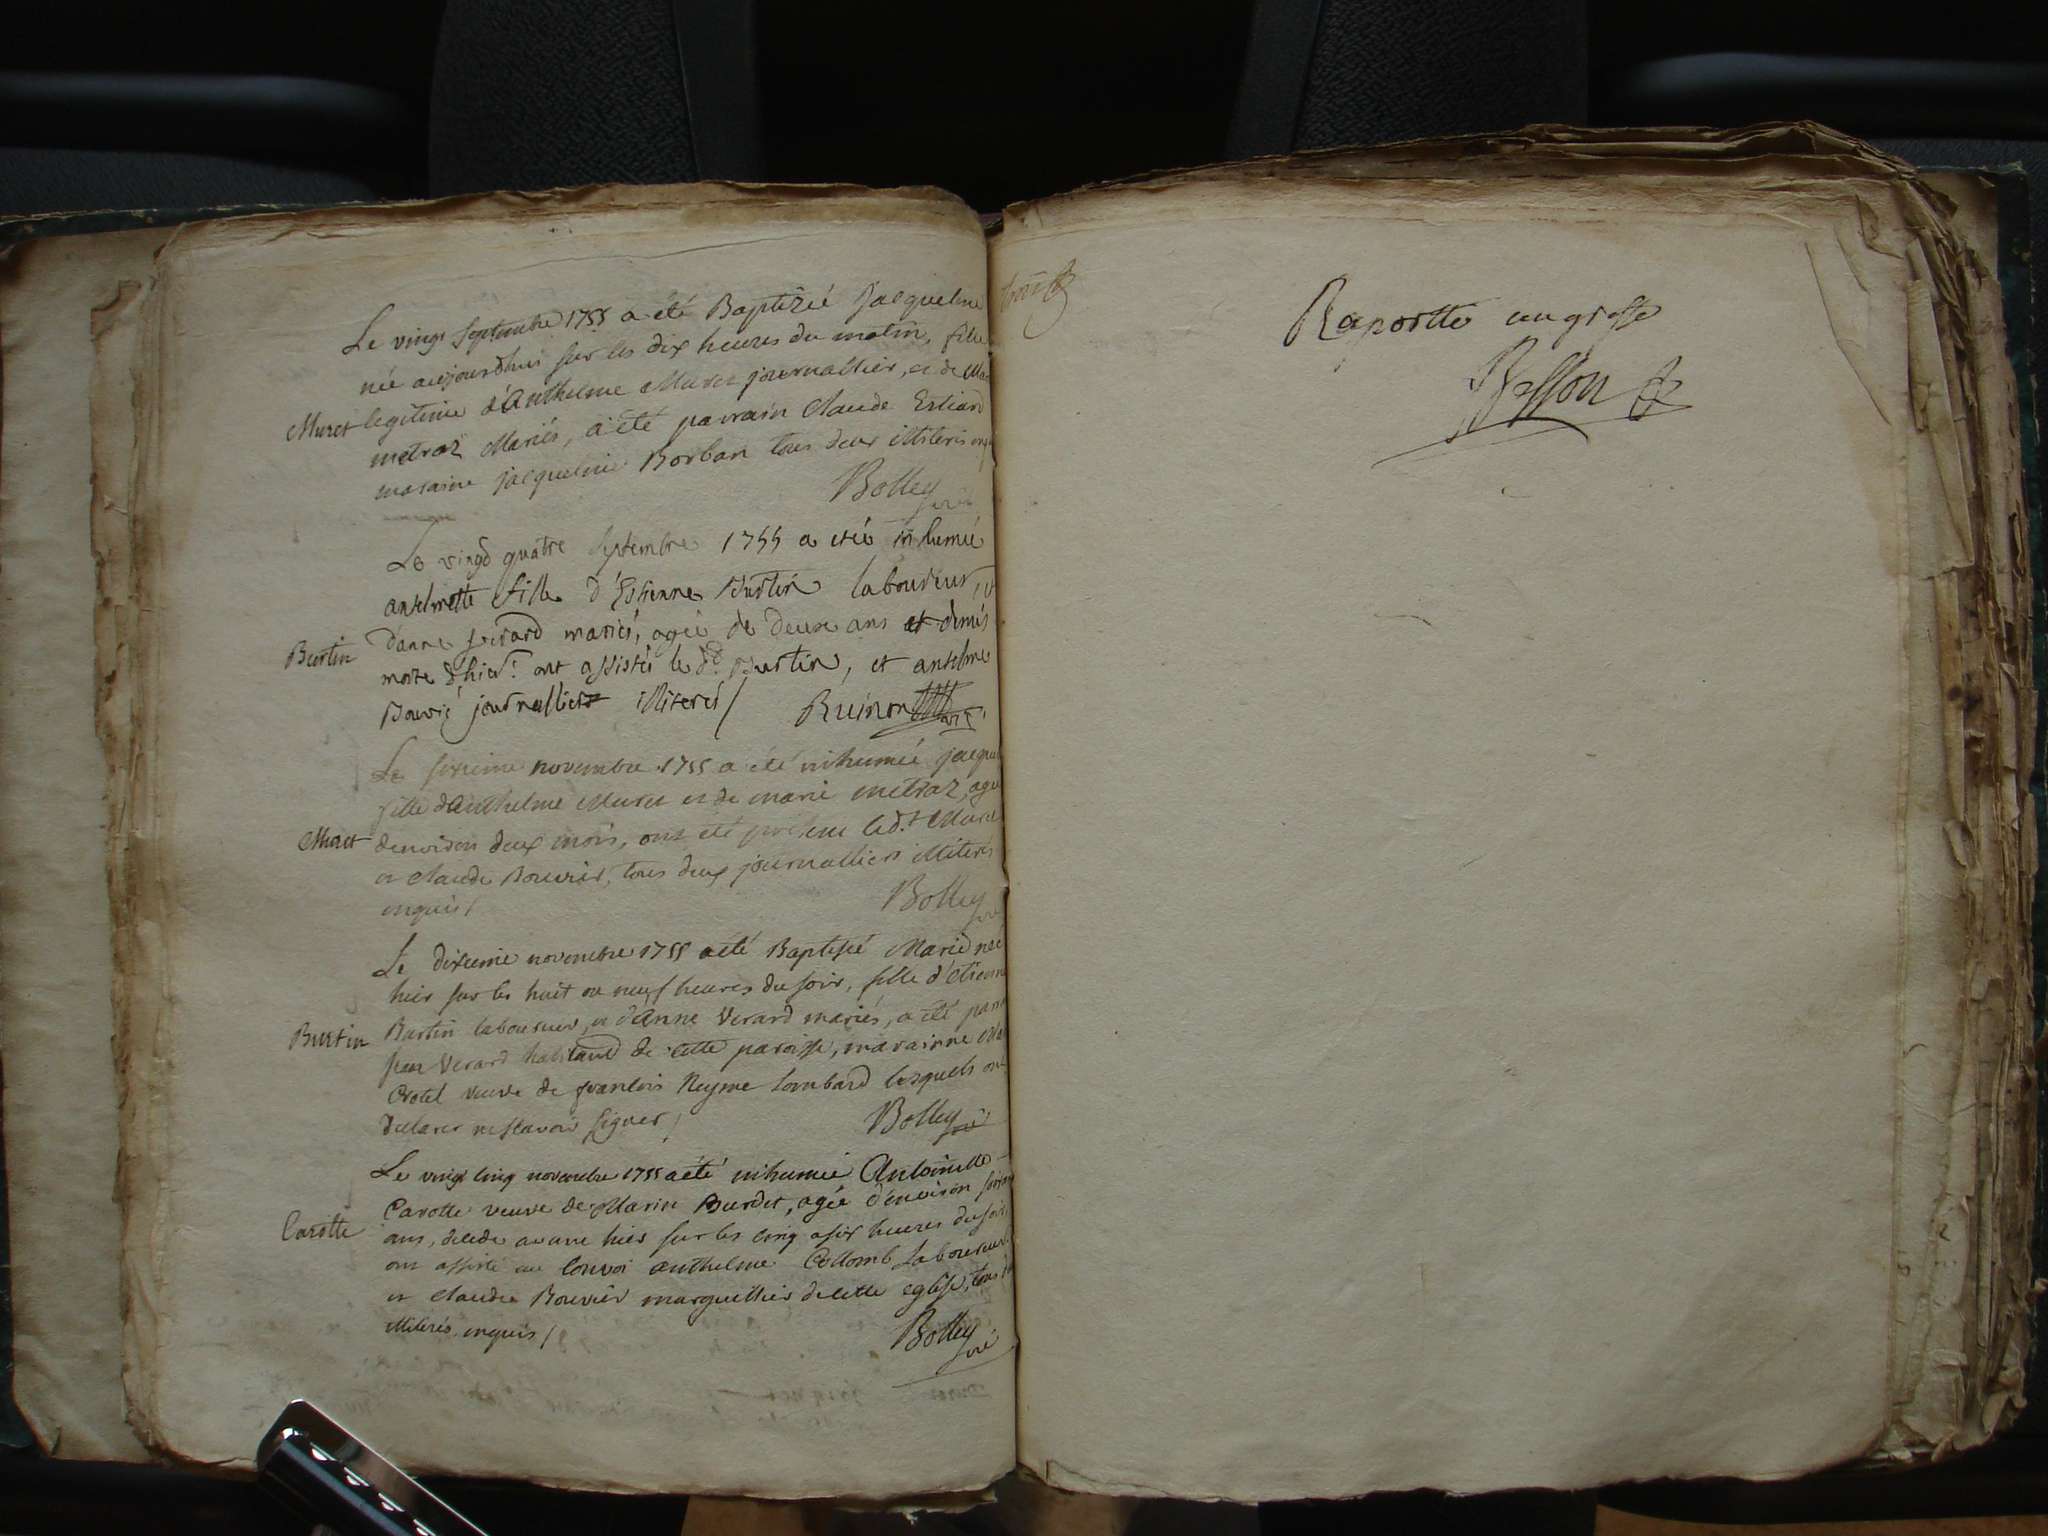 Le vingt Septembre 1755 a été Baptizéé Jacqueline
née aujourdhui sur les dix heures du matin, fille
Muret legitime d'Anthelme Muret journallier, et de Mar
metraz Mariés, a été parrain Claude Estiard
maraine Jacqueline Borban tous deux illiterés enq
Bolley curé
Le vingd quatre septembre 1755 a etéé inhuméé
anselmette fille d'Estienne Burtin laboureur, et
Burtin d'anne verard mariés, ageé de deux ans et demis
morte d'hier: ont assistés le dt. Burtin, et anselme
Bouvié journallier illiterés /
Ruinon
Le sixieme novembre 1755 a été inhuméé jacque
fille d'Anthelme Muret et de marie metraz, agé
Muret denviron deux mois, ont été présent led.t Muret
et Claude Bouvier, tous deux journalliers illiterés
enquis /
Bolley curé
Le dixieme novembre 1755 a été Baptiséé Marie née
hier sur les huit ou neuf heures du soir, fille d'etienn
Burtin Burtin laboureur, et d'Anne Verard mariés, a été parr
jean Verard habitand de cette paroisse, marainne
Crotel veuve de francois Neyme Lombard lesquels ont
declarer ne scavoir signer /
Bolley curé
Le vingt cinq novembre 1755 a été inhuméé Antoinette
Carotte Carotte veuve de Marin Burdet, agée d'environ soixan
ans, decede avant hier sur les cinq a six heures du soir,
ont assisté au convoi anthelme Collomb Laboureur
et Claude Bouvier marguillier de cette eglise, tous d
illiterés enquis /
Bolley curé
Raportté au greffe
Besson